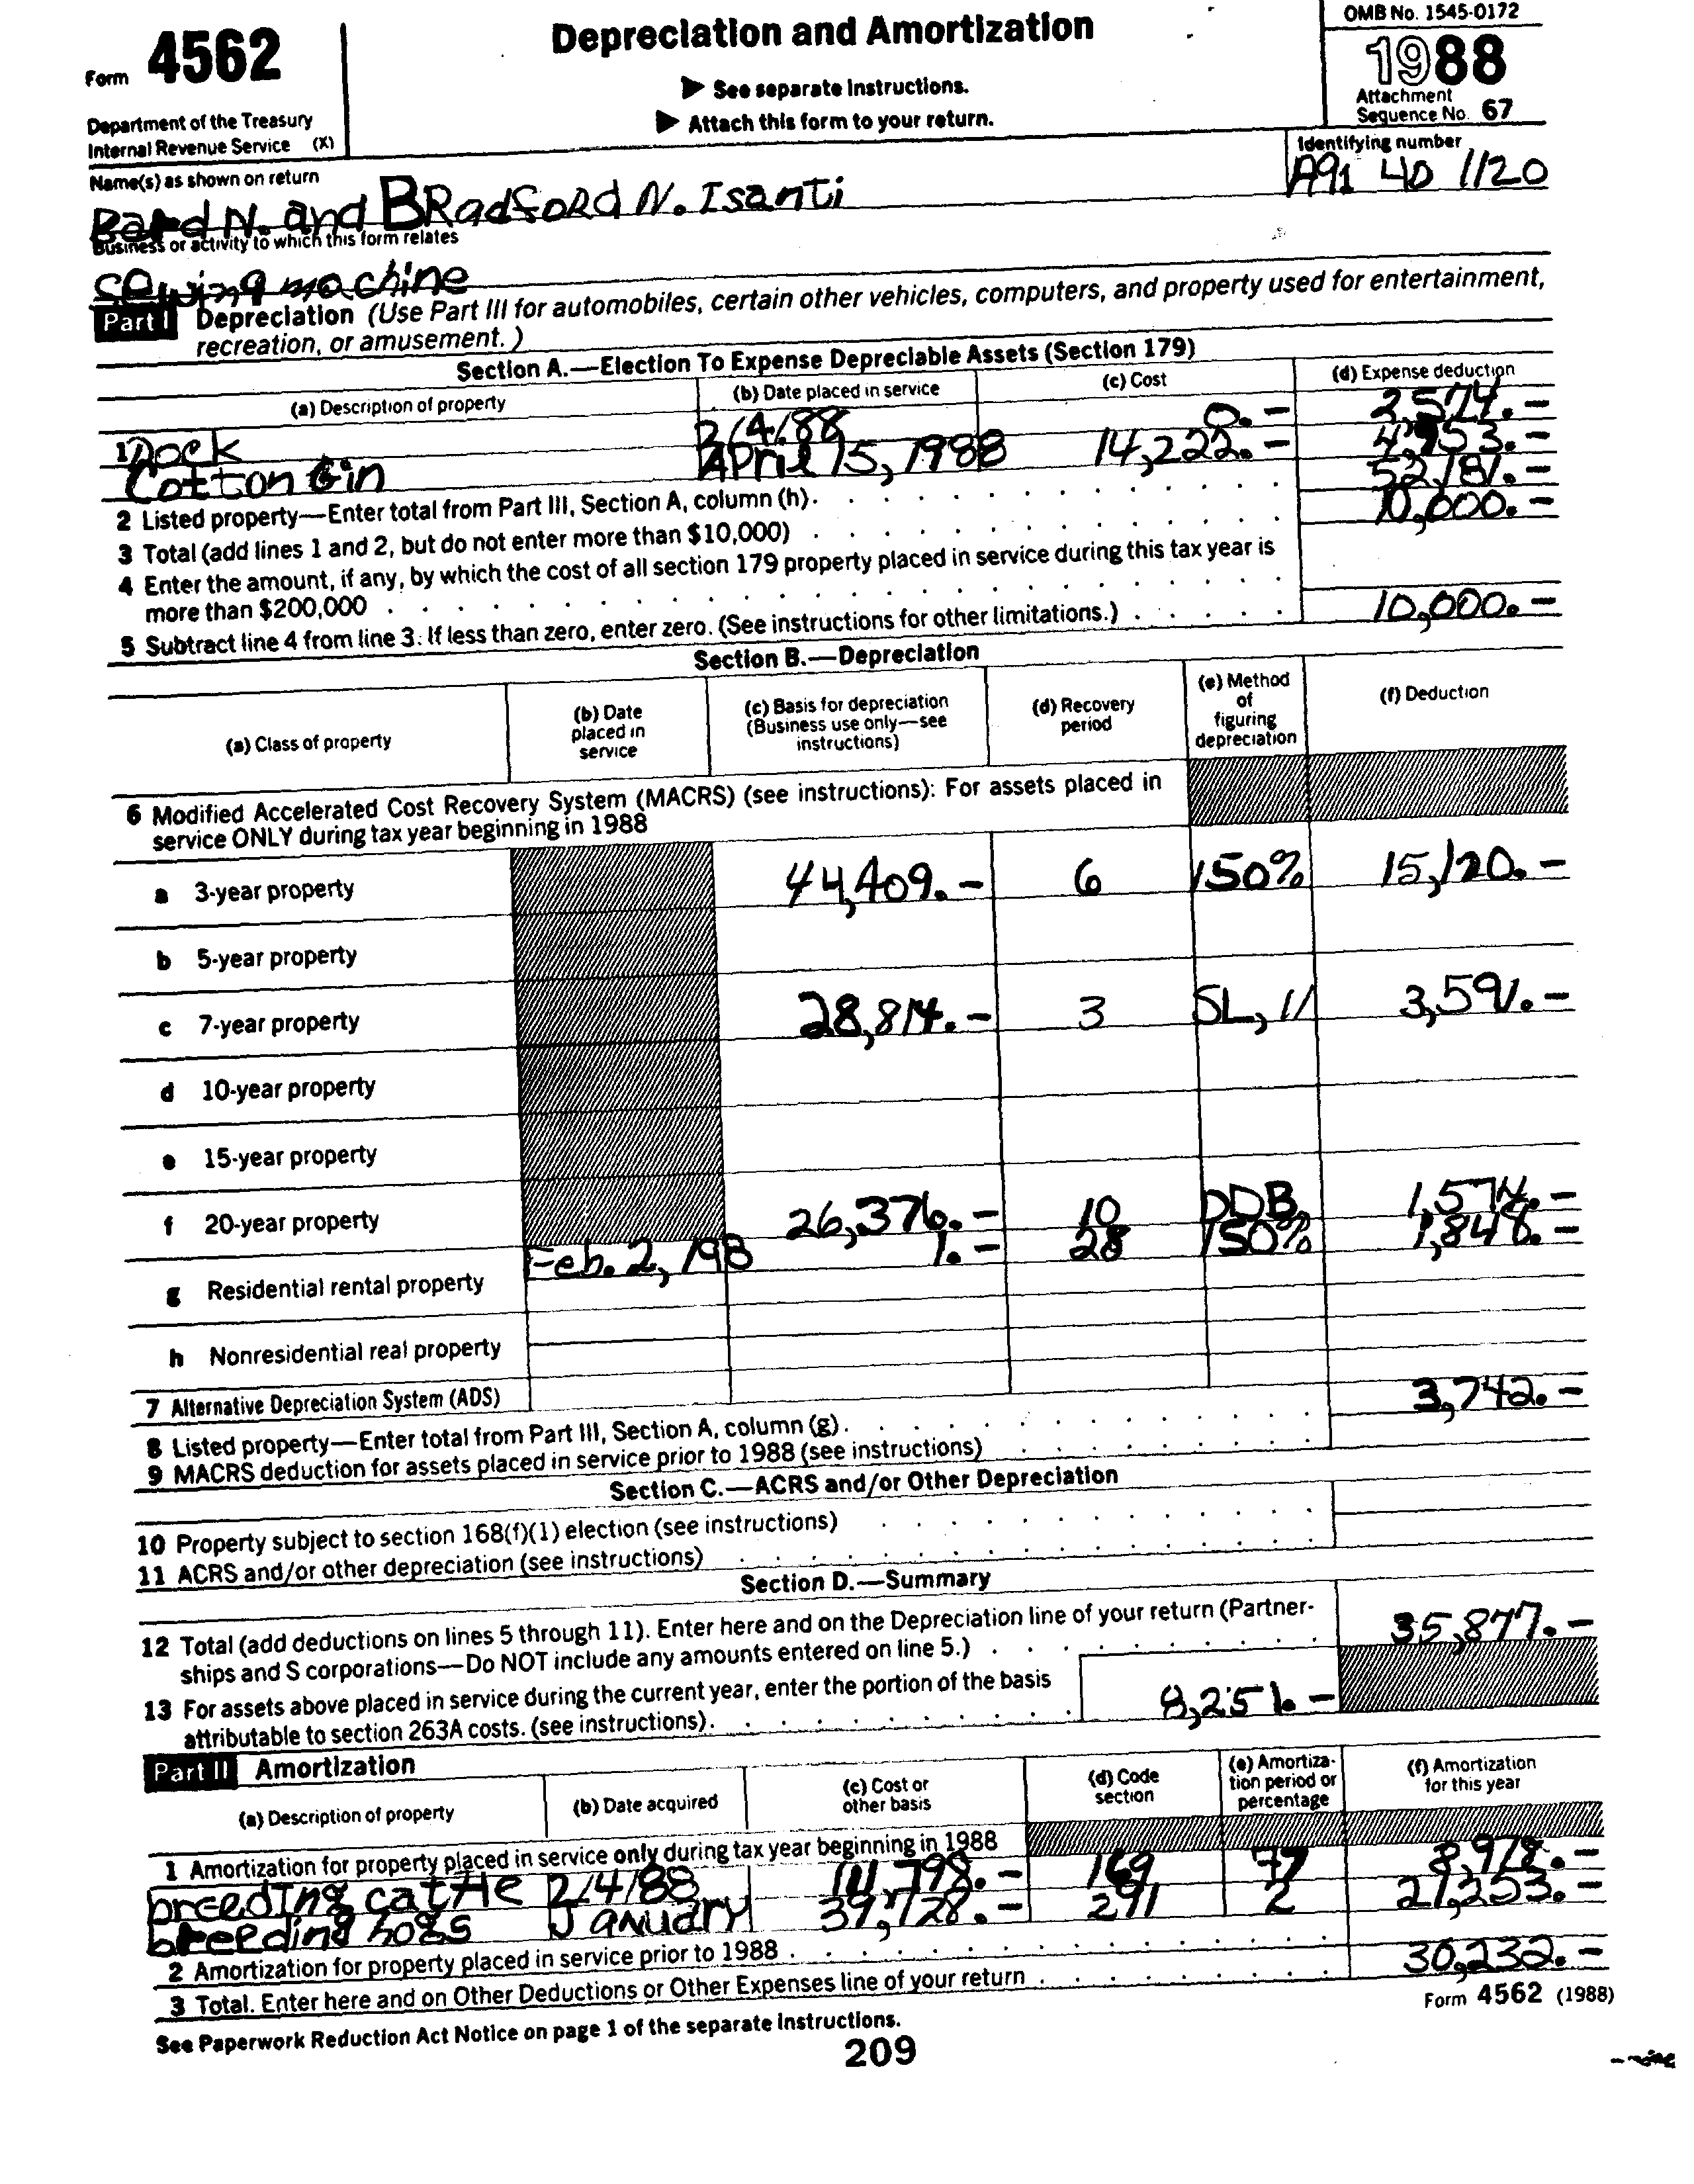 Form 4562
Department of the Treasury
Internal Revenue Service (X)
Depreciation and Amortization
▶ See separate instructions.
▶ Attach this form to your return.
OMB No. 1545-0172
1988
Attachment
Sequence No. 67
Name(s) as shown on return
Identifying number
and BRadford N. Isanti
A91 40 1120
Business or activity to which this form relates
sewing machine
Part I Depreciation (Use Part III for automobiles, certain other vehicles, computers, and property used for entertainment,
recreation, or amusement.)
Section A.—Election To Expense Depreciable Assets (Section 179)
(a) Description of property (b) Date placed in service (c) Cost (d) Expense deduction
1 Dock 2/4/88 0.- 2,574.-
Cotton Gin April 15, 1988 14,222.- 4,953.-
2 Listed property—Enter total from Part III, Section A, column (h). 52,181.-
3 Total (add lines 1 and 2, but do not enter more than $10,000) 10,000.-
4 Enter the amount, if any, by which the cost of all section 179 property placed in service during this tax year is
more than $200,000
5 Subtract line 4 from line 3. If less than zero, enter zero. (See instructions for other limitations.) 10,000.-
Section B.—Depreciation
(a) Class of property (b) Date placed in service (c) Basis for depreciation (Business use only—see instructions) (d) Recovery period (e) Method of figuring depreciation (f) Deduction
6 Modified Accelerated Cost Recovery System (MACRS) (see instructions): For assets placed in
service ONLY during tax year beginning in 1988
a 3-year property 44,409.- 6 150% 15,120.-
b 5-year property
c 7-year property 28,814.- 3 SL, 11 3,591.-
d 10-year property
e 15-year property
f 20-year property 26,376.- 10 DDB 1,574.-
g Residential rental property Feb. 2, 198 1.- 28 150% 1,848.-
h Nonresidential real property
7 Alternative Depreciation System (ADS)
8 Listed property—Enter total from Part III, Section A, column (g). 3,742.-
9 MACRS deduction for assets placed in service prior to 1988 (see instructions)
Section C.—ACRS and/or Other Depreciation
10 Property subject to section 168(f)(1) election (see instructions)
11 ACRS and/or other depreciation (see instructions)
Section D.—Summary
12 Total (add deductions on lines 5 through 11). Enter here and on the Depreciation line of your return (Partner-
ships and S corporations—Do NOT include any amounts entered on line 5.) 35,877.-
13 For assets above placed in service during the current year, enter the portion of the basis
attributable to section 263A costs. (see instructions). 8,251.-
Part II Amortization
(a) Description of property (b) Date acquired (c) Cost or other basis (d) Code section (e) Amortization period or percentage (f) Amortization for this year
1 Amortization for property placed in service only during tax year beginning in 1988
breeding cattle 2/4/88 169 77 8,978.-
breeding hogs January 39,728.- 291 2 21,253.-
2 Amortization for property placed in service prior to 1988
3 Total. Enter here and on Other Deductions or Other Expenses line of your return 30,232.-
See Paperwork Reduction Act Notice on page 1 of the separate instructions.
Form 4562 (1988)
209